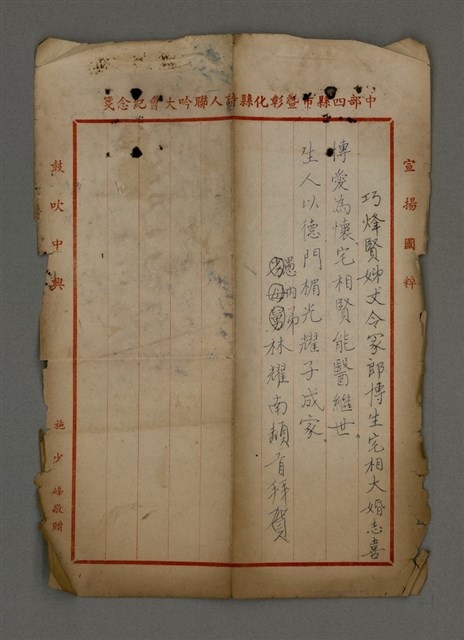 中部四縣市暨彰化縣詩人聯吟大會紀念箋
宣揚國粹
巧烽賢姊丈令冢郎博生宅相大婚志喜
博愛為懷宅相賢能醫繼世
生人以德門楣光耀子成家
愚內弟
母舅
林耀南頓首拜賀
鼓吹中興
施少峰敬贈